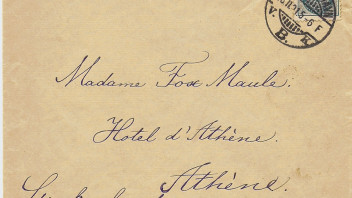 V. B. K.
Madame Fox Maule.
Hotel d'Athène.
Athène.